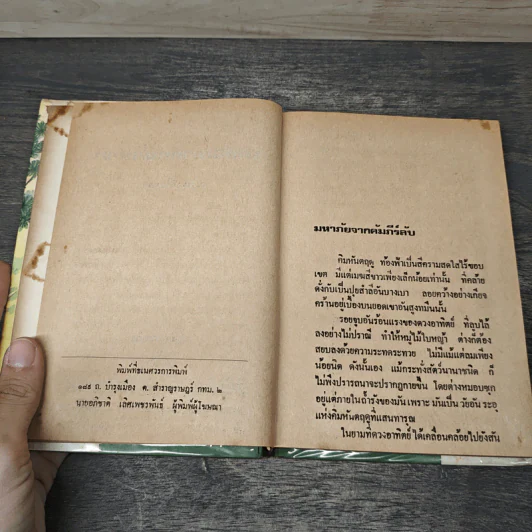 พิมพ์ที่เนศวรการพิมพ์
๑๙๕ ถ. บำรุงเมือง ต. สำราญราษฎร์ กทม. ๒
นายอภิชาติ เลิศเพชรพันธ์ ผู้พิมพ์ผู้โฆษณา
มหาภัยจากคัมภีร์ลับ
คิมหันตฤดู ท้องฟ้าเป็นสีครามสดใสไร้ขอบ
เขต มีแต่เมฆสีขาวเพียงเล็กน้อยเท่านั้น ที่คล้าย
ดั่งกับเป็นปุยสำลีอันบางเบา ลอยคว้างอย่างเกียจ
คร้านอยู่เบื้องบนยอดเขาอันสูงทมึนนั้น
รอยจูบอันร้อนแรงของดวงอาทิตย์ ที่ลูบไล้
ลงอย่างไม่ปราณี ทำให้หมู่ไม้ใบหญ้า ต่างก็ต้อง
สยบลงด้วยความระทดระทวย ไม่มีแม้แต่ลมเพียง
น้อยนิด ดังนั้นเอง แม้กระทั่งสัตว์นานาชนิด ก็
ไม่พึงปรารถนาจะปรากฏกายขึ้น โดยต่างหมอบซุก
อยู่แต่ภายในถ้ำรังของมัน เพราะ มันเป็น วัยอัน ระอุ
แห่งคิมหันตฤดูที่แสนทารุณ
ในยามที่ดวงอาทิตย์ ได้เคลื่อนคล้อยไปยังสัน